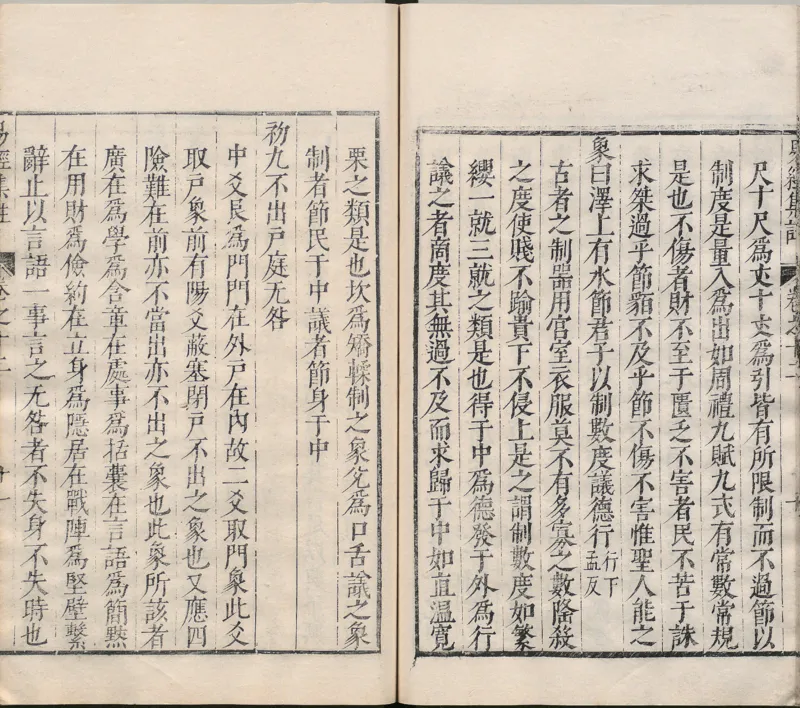 尺十尺爲丈十丈爲引皆有所限制而不過節以
制度是量入爲出如周禮九賦九式有常數常規
是也不傷者財不至于匱乏不害者民不苦于誅
求桀過乎節貊不及乎節不傷不害惟聖人能之
象曰澤上有水節君子以制數度議德行行下孟反
古者之制器用宮室衣服莫不有多寡之數隆殺
之度使賤不踰貴下不侵上是之謂制數度如繁
纓一就三就之類是也得于中爲德發于外爲行
議之者商度其無過不及而求歸于中如直溫寬
栗之類是也坎爲矯輮制之象兌爲口舌議之象
制者節民于中議者節身于中
初九不出戶庭无咎
中爻艮爲門門在外戶在內故二爻取門象此爻
取戶象前有陽爻蔽塞閉戶不出之象也又應四
險難在前亦不當出亦不出之象也此象所該者
廣在爲學爲含章在處事爲括囊在言語爲簡黙
在用財爲儉約在立身爲隱居在戰陣爲堅壁繫
辭止以言語一事言之无咎者不失身不失時也
易經集註 卷之十二